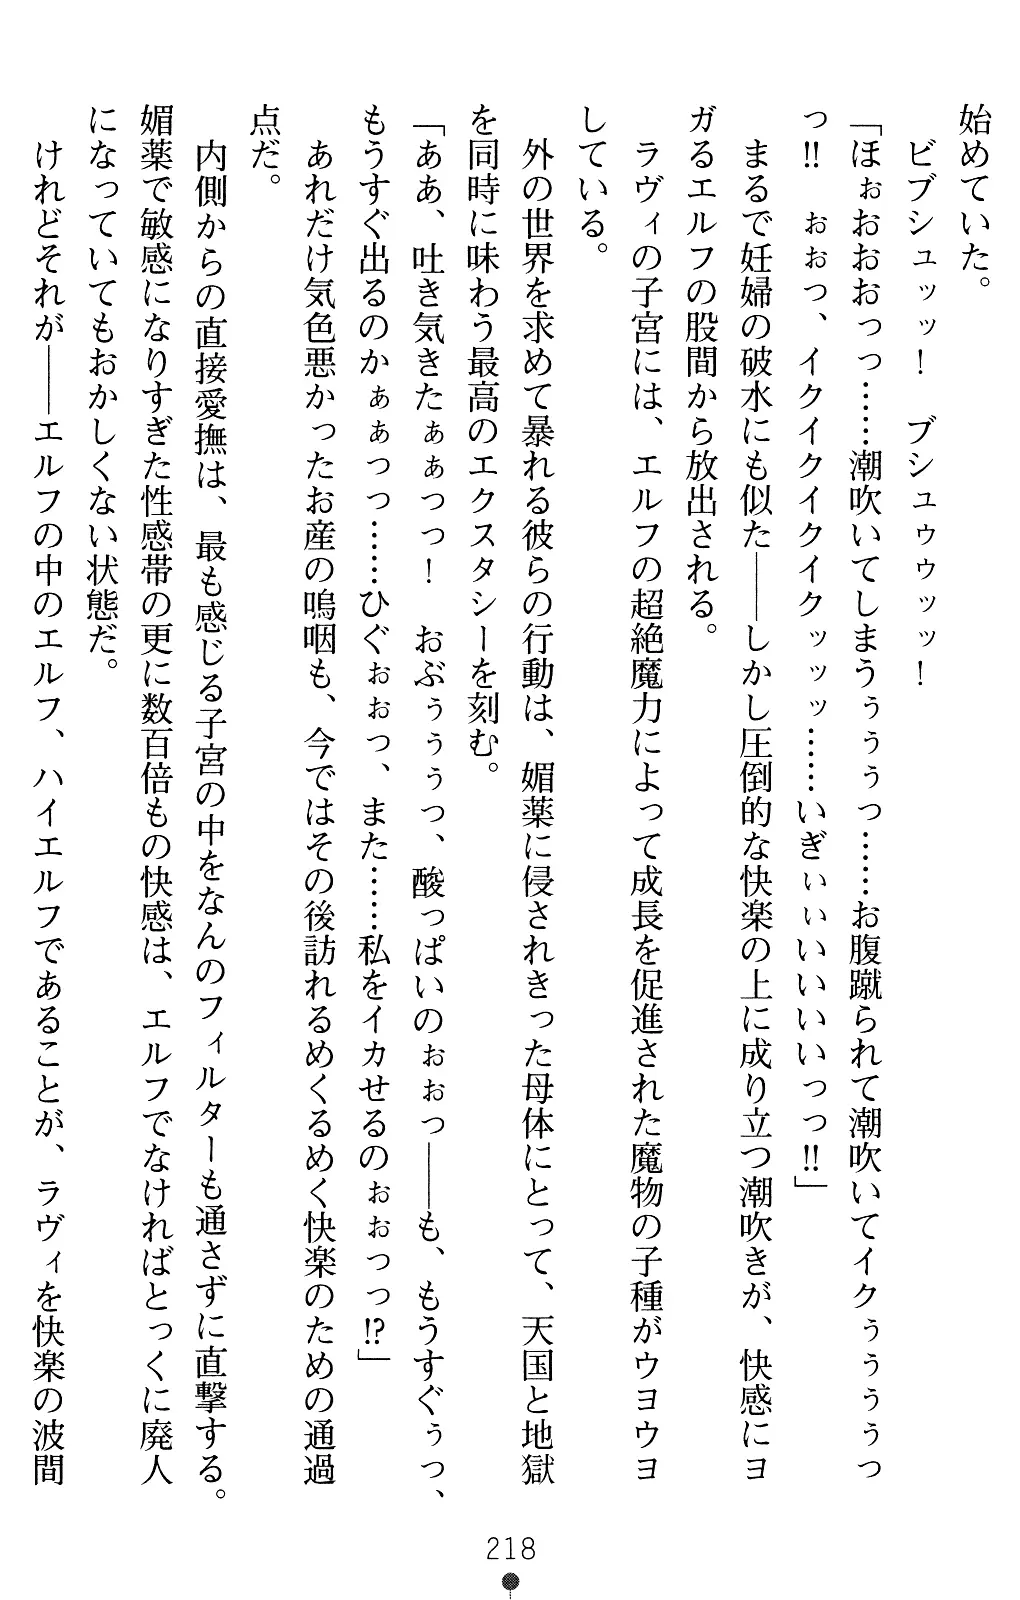 始めていた。
　ビブシュッッ！　ブシュゥゥッッ！
「ほぉおおおっっ……潮吹いてしまうぅぅぅっ……お腹蹴られて潮吹いてイクぅぅぅぅっ
っ‼　ぉぉっ、イクイクイクイクッッッ……いぎぃぃいいいいっっ‼」
　まるで妊婦の破水にも似た――しかし圧倒的な快楽の上に成り立つ潮吹きが、快感にヨ
ガるエルフの股間から放出される。
　ラヴィの子宮には、エルフの超絶魔力によって成長を促進された魔物の子種がウヨウヨ
している。
　外の世界を求めて暴れる彼らの行動は、媚薬に侵されきった母体にとって、天国と地獄
を同時に味わう最高のエクスタシーを刻む。
「ああ、吐き気きたぁぁっっ！　おぶぅぅぅっ、酸っぱいのぉぉっ――も、もうすぐぅっ、
もうすぐ出るのかぁぁっっ……ひぐぉぉっ、また……私をイカせるのぉぉっっ⁉」
　あれだけ気色悪かったお産の嗚咽も、今ではその後訪れるめくるめく快楽のための通過
点だ。
　内側からの直接愛撫は、最も感じる子宮の中をなんのフィルターも通さずに直撃する。
媚薬で敏感になりすぎた性感帯の更に数百倍もの快感は、エルフでなければとっくに廃人
になっていてもおかしくない状態だ。
　けれどそれが――エルフの中のエルフ、ハイエルフであることが、ラヴィを快楽の波間
218